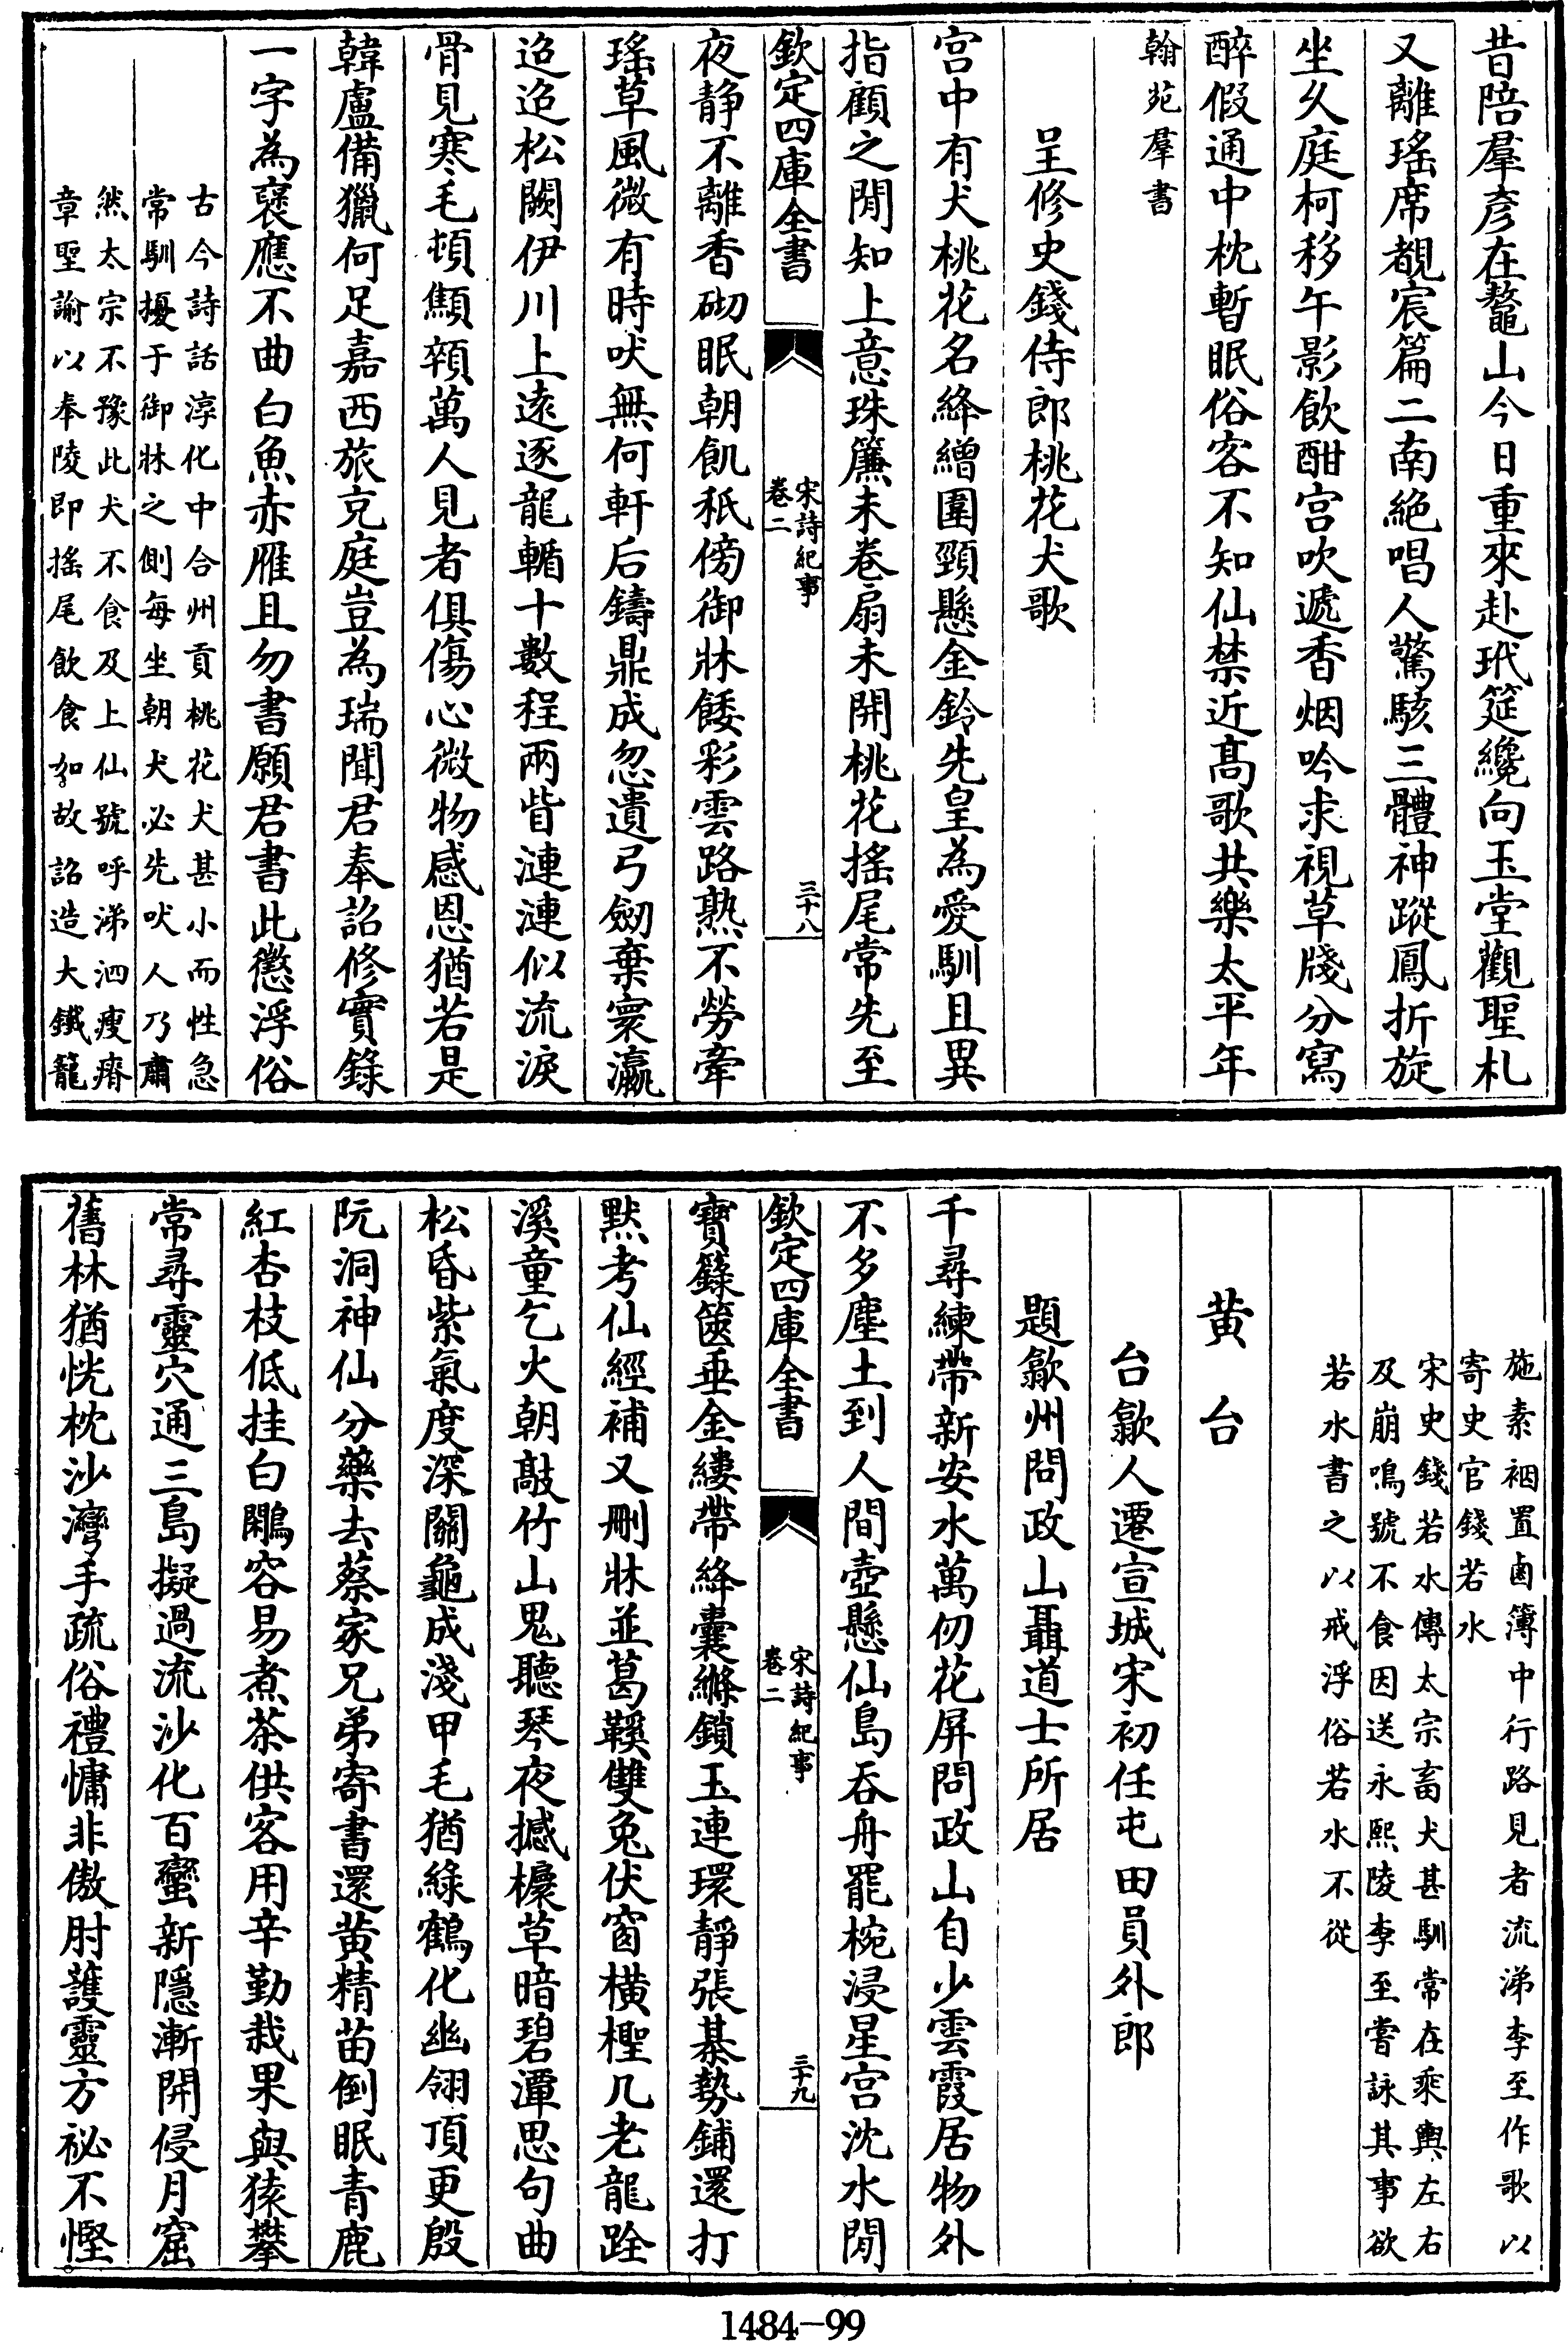 昔陪羣彦在鼇山今日重來赴玳筵纔向玉堂觀聖札
又離瑤席覩宸篇二南絶唱人驚駭三體神蹤鳳折旋
坐久庭柯移午影飲酣宫吹遞香烟吟求視草牋分寫
醉假通中枕暫眠俗客不知仙禁近髙歌共樂太平年
翰苑羣書
呈修史錢侍郎桃花犬歌
宫中有犬桃花名絳繒圍頸懸金鈴先皇為愛馴且異
指顧之閒知上意珠簾未卷扇未開桃花搖尾常先至
欽定四庫全書
宋詩紀事
卷二
三十八
夜静不離香砌眠朝飢秖傍御牀餧彩雲路熟不勞牽
瑤草風微有時吠無何軒后鑄鼎成忽遺弓劒棄寰瀛
迢迢松闕伊川上逺逐龍輴十數程兩眥漣漣似流淚
骨見寒毛頓顦顇萬人見者俱傷心微物感恩猶若是
韓盧備獵何足嘉西旅充庭豈為瑞聞君奉詔修實錄
一字為襃應不曲白魚赤雁且勿書願君書此懲浮俗
古今詩話淳化中合州貢桃花犬甚小而性急
常馴擾于御牀之側每坐朝犬必先吠人乃肅
然太宗不豫此犬不食及上仙號呼涕泗瘦瘠
章聖諭以奉陵即搖尾飲食如故詔造大鐵籠
施素裀置鹵簿中行路見者流涕李至作歌以
寄史官錢若水
宋史錢若水傳太宗畜犬甚馴常在乘輿左右
及崩鳴號不食因送永熙陵李至嘗詠其事欲
若水書之以戒浮俗若水不從
黄台
台歙人遷宣城宋初任屯田員外郎
題歙州問政山聶道士所居
千尋練帶新安水萬仞花屏問政山自少雲霞居物外
不多塵土到人間壺懸仙島吞舟罷椀浸星宫沈水閒
欽定四庫全書
宋詩紀事
卷二
三十九
寶籙篋垂金縷帶絳囊縧鎖玉連環靜張棊勢鋪還打
黙考仙經補又刪牀並葛鞵雙兔伏窗横檉几老龍跧
溪童乞火朝敲竹山鬼聽琴夜撼欀草暗碧潭思句曲
松昏紫氣度深關龜成淺甲毛猶綠鶴化幽翎頂更殷
阮洞神仙分藥去蔡家兄弟寄書還黄精苗倒眠青鹿
紅杏枝低挂白鷳容易煮茶供客用辛勤栽果與猿攀
常尋靈穴通三島擬過流沙化百蠻新隱漸開侵月窟
舊林猶恍枕沙灣手疏俗禮慵非傲肘䕶靈方祕不慳
1484-99